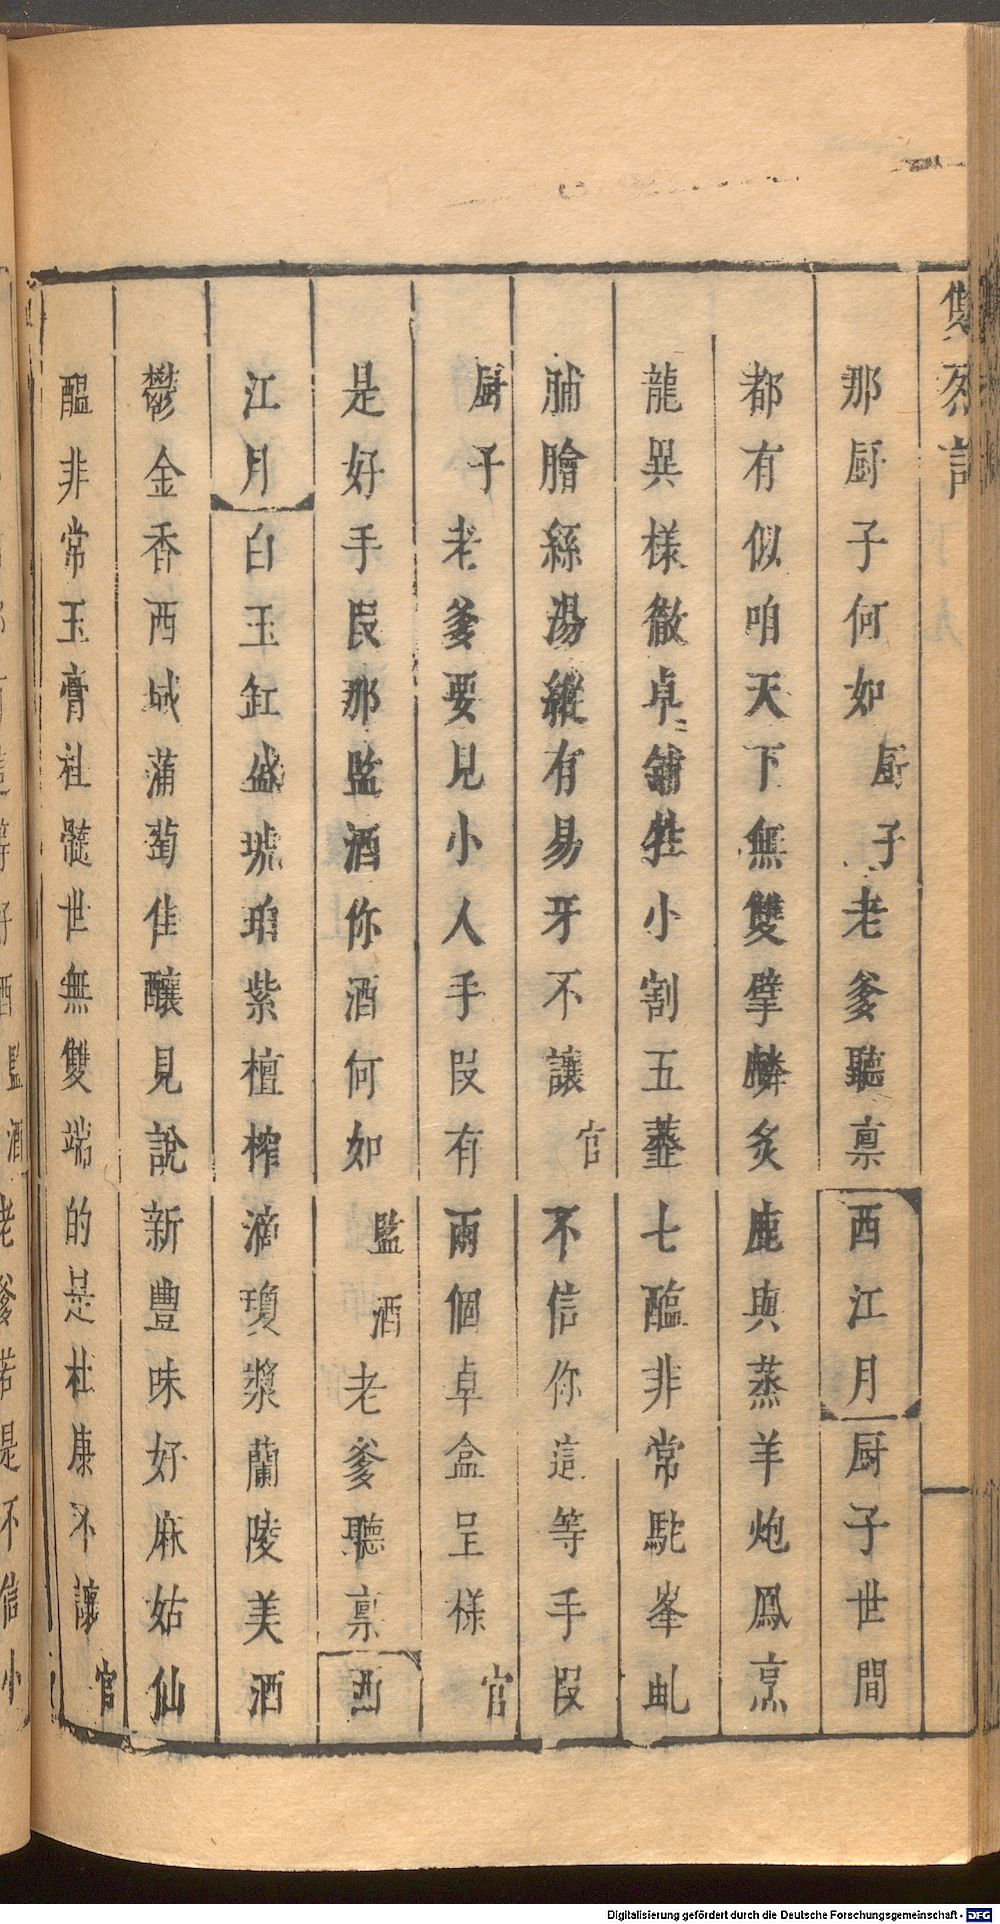 雙烈記
那厨子何如厨子老爹聽禀西江月厨子世間
都有似咱天下無雙擘麟炙鹿與蒸羊炮鳳烹
龍異樣徹卓鋪牲小割五虀七醢非常駝峯虬
脯膾絲湯縱有易牙不讓官不信你這等手段
厨子老爹要見小人手段有兩個卓盒呈樣官
是好手段那監酒你酒何如監酒老爹聽禀西
江月白玉缸盛琥珀紫檀榨滴瓊漿蘭陵美酒
鬱金香西域蒲萄佳釀見說新豐味好麻姑仙
醞非常玉膏社髓世無雙端的是杜康不讓官
監酒老爹若是不信小
Digitalisierung gefördert durch die Deutsche Forschungsgemeinschaft - DFG